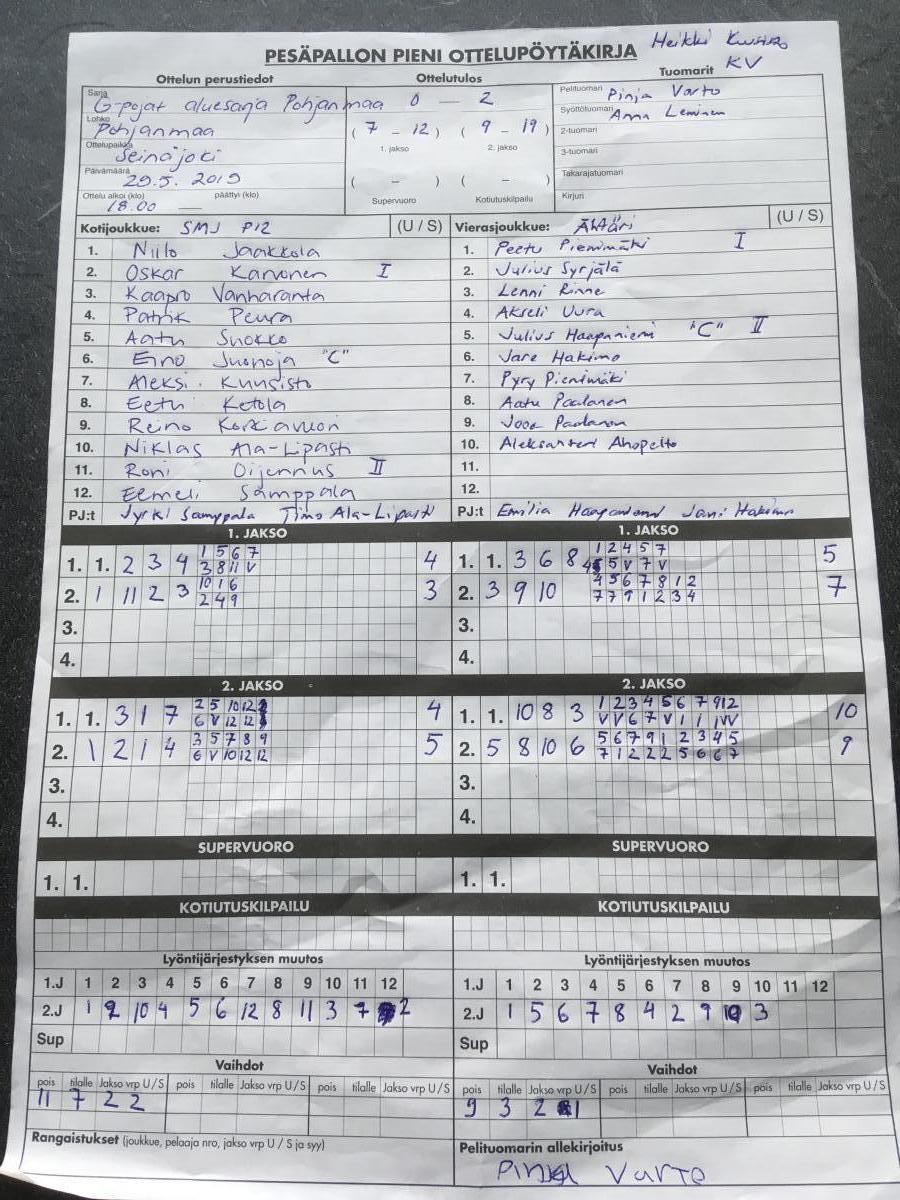 Heikki
PESÄPALLON PIENI OTTELUPÖYTÄKIRJA
KV
Ottelun perustiedot
Ottelutulos
Tuomarit
Sarja G-pojat aluesarja Pohjanmaa
0 — 2
Pelituomari Pinja Varto
Lohko Pohjanmaa
(7 – 12) (9 – 19)
Syöttötuomari Anna Leminen
1. jakso 2. jakso
2-tuomari
Ottelupaikka Seinäjoki
3-tuomari
Päivämäärä 29.5. 2019
( – ) ( – )
Takarajatuomari
Ottelu alkoi (klo) päättyi (klo)
18.00 —
Supervuoro Kotiutuskilpailu
Kirjuri
Kotijoukkue: SMJ P12 (U / S)
Vierasjoukkue: Ähtäri (U / S)
1. Niilo Jaakkola
1. Peetu Pienimäki I
2. Oskar Karvonen I
2. Julius Syrjälä
3. Kaapro Vanharanta
3. Lenni Rinne
4. Patrik Peura
4. Akseli Uura
5. Aatu Suokko
5. Julius Haapaniemi "C" II
6. Eino Juonoja "C"
6. Jare Hakimo
7. Aleksi Kuusisto
7. Pyry Pienimäki
8. Eetu Ketola
8. Aatu Paalanen
9. Reino Korkavuori
9. Joor Paalanen
10. Niklas Ala-Lipasti
10. Aleksanteri Ahopelto
11. Roni Oijennus II
11.
12. Eemeli Sämppala
12.
PJ:t Jyrki Samppala Timo Ala-Lipasti
PJ:t Emilia Jani Hakimo
1. JAKSO
1. JAKSO
1 5 6 7
1 2 4 5 7
1. 1. 2 3 4 3 8 11 V 4
1. 1. 3 6 8 5 V 7 V 5
10 1 6
4 5 6 7 8 1 2
2. 1 11 2 3 2 4 9 3
2. 3 9 10 7 7 9 1 2 3 4 7
3.
3.
4.
4.
2. JAKSO
2. JAKSO
2 5 10 12
1 2 3 4 5 6 7 9 12
1. 1. 3 1 7 6 V 12 12 4
1. 1. 10 8 3 V V 6 7 V 1 1 1 V V 10
3 5 7 8 9
5 6 7 9 1 2 3 4 5
2. 1 2 1 4 6 V 10 12 12 5
2. 5 8 10 6 7 1 2 2 2 5 6 6 7 9
3.
3.
4.
4.
SUPERVUORO
SUPERVUORO
1. 1.
1. 1.
KOTIUTUSKILPAILU
KOTIUTUSKILPAILU
Lyöntijärjestyksen muutos
Lyöntijärjestyksen muutos
1.J 1 2 3 4 5 6 7 8 9 10 11 12
1.J 1 2 3 4 5 6 7 8 9 10 11 12
2.J 1 9 10 4 5 6 12 8 11 3 7 2
2.J 1 5 6 7 8 4 2 9 10 3
Sup
Sup
Vaihdot
Vaihdot
pois tilalle Jakso vrp U / S pois tilalle Jakso vrp U / S pois tilalle Jakso vrp U / S
pois tilalle Jakso vrp U / S pois tilalle Jakso vrp U / S pois tilalle Jakso vrp U / S
11 7 2 2
9 3 2 1
Rangaistukset (joukkue, pelaaja nro, jakso vrp U / S ja syy)
Pelituomarin allekirjoitus
Pinja Varto